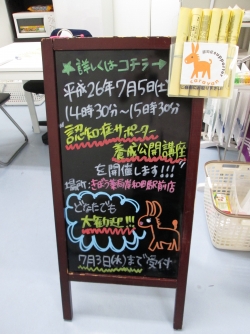 ★詳しくはコチラ→
平成26年7月5日(土)
14時30分〜15時30分
認知症サポーター
養成公開講座
を開催します!!!
場所:きぼう薬局岸和田駅前店
どなたでも
大歓迎!!
7月3日(木)まで受付